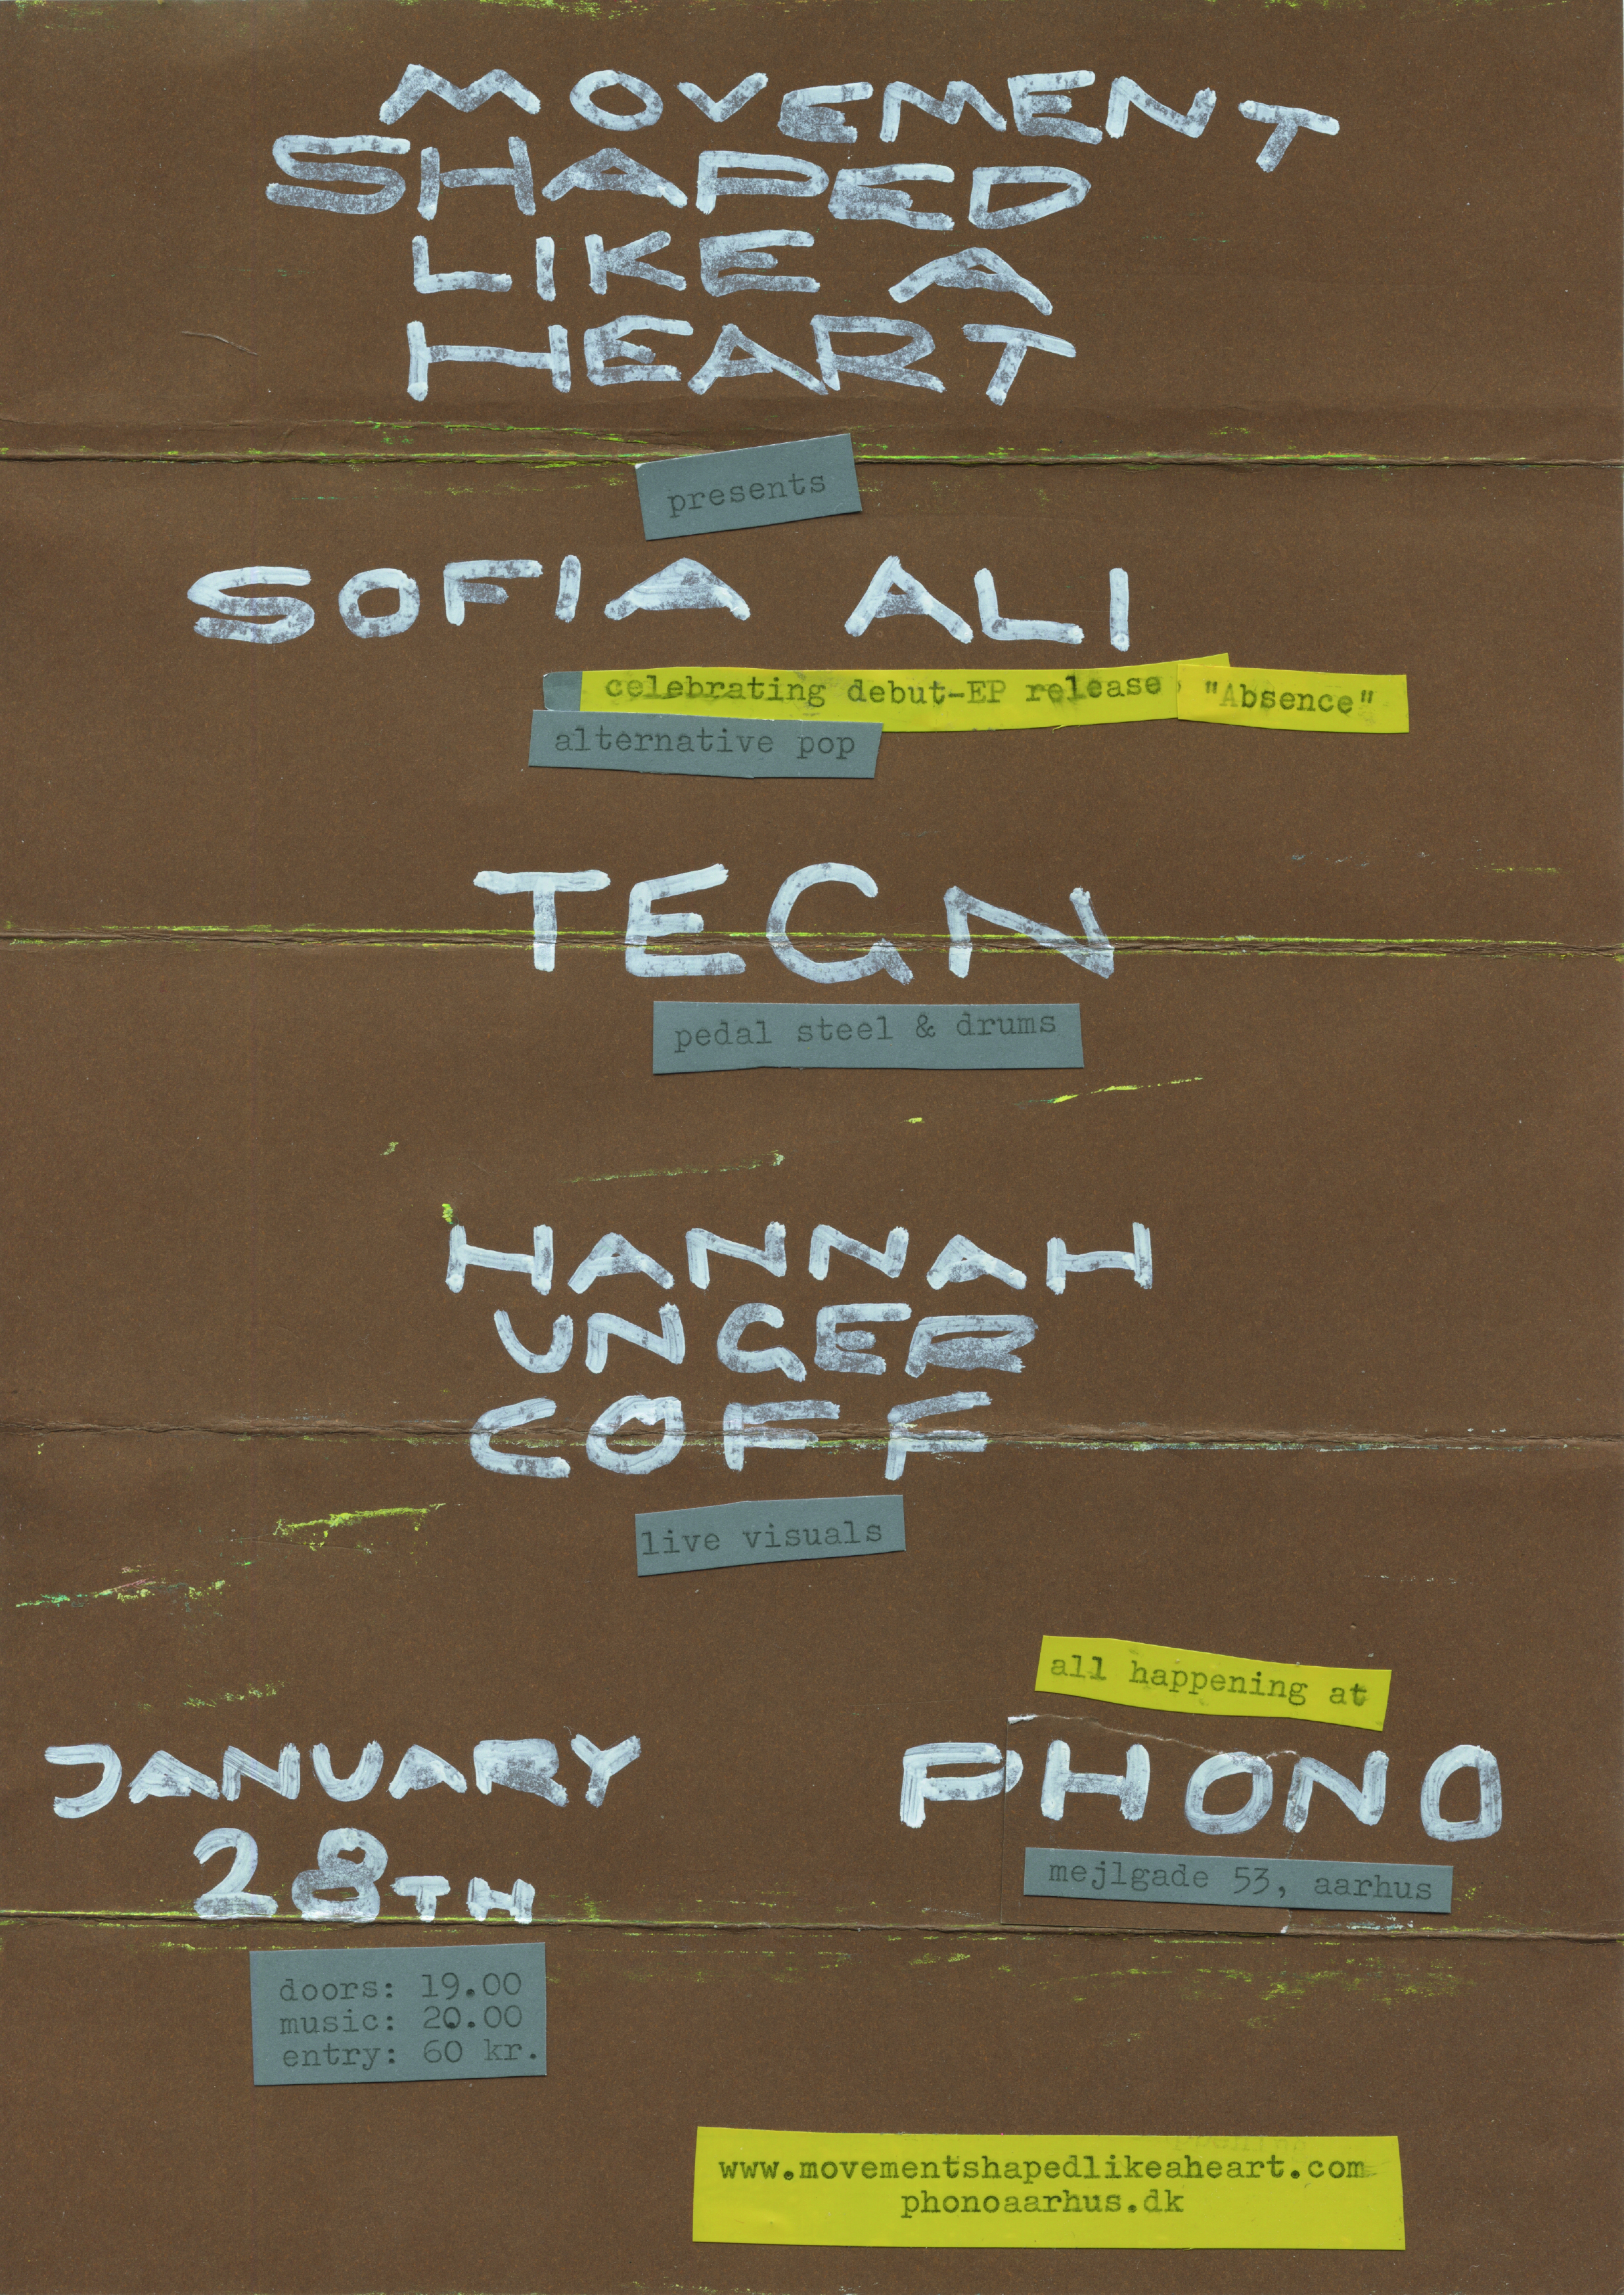 MOVEMENT
SHAPED
LIKE A
HEART
presents
SOFIA ALI
celebrating debut-EP release "Absence"
alternative pop
TEGN
pedal steel & drums
HANNAH
UNGER
COFF
live visuals
all happening at
JANUARY
28TH
PHONO
mejlgade 53, aarhus
doors: 19.00
music: 20.00
entry: 60 kr.
www.movementshapedlikeaheart.com
phonoaarhus.dk